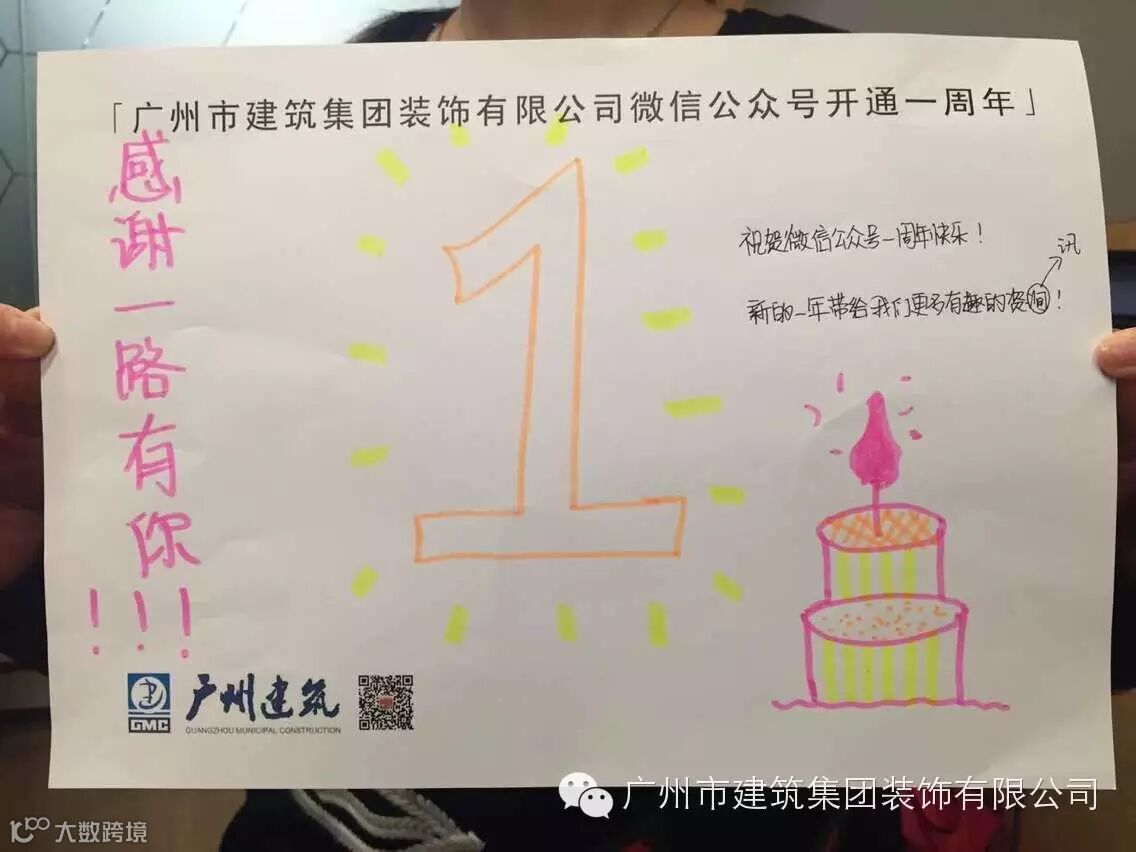 「广州市建筑集团装饰有限公司微信公众号开通一周年」
感谢一路有你
!!!
祝贺微信公众号一周年快乐!
讯
新的一年带给我们更多有趣的资询!
GMC
广州建筑
GUANGZHOU MUNICIPAL CONSTRUCTION
广州市建筑集团装饰有限公司
大数跨境